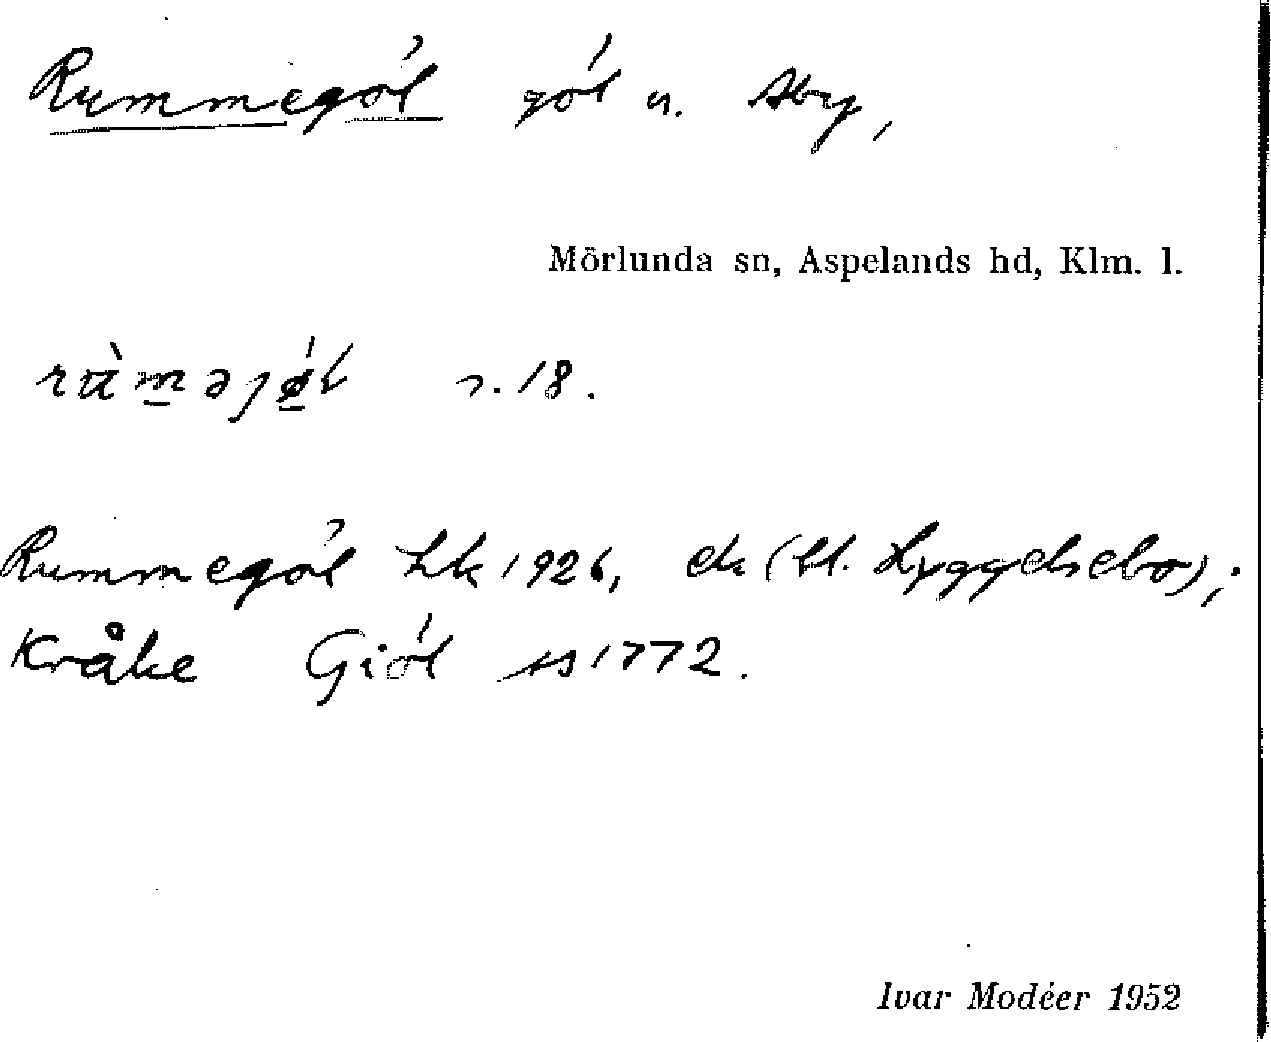 Rummegöl göl u. Åby,
Mörlunda sn, Aspelands hd, Klm. l.
s. 18.
Rummegöl hk 1926, ek (bl. Lyggelsebo);
Kråke Giöl ss 1772.
Ivar Modéer 1952